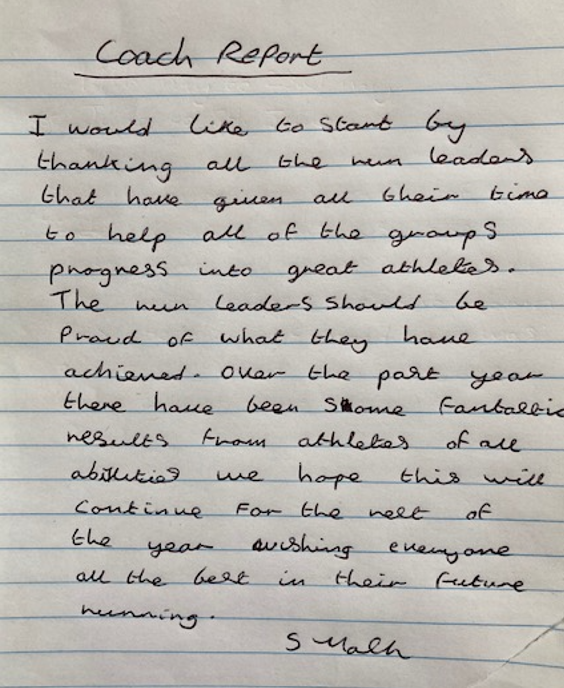 Coach Report
I would like to start by
thanking all the run leaders
that have given all their time
to help all of the groups
progress into great athletes.
The run leaders should be
Proud of what they have
achieved. Over the past year
there have been some fantastic
results from athletes of all
abilities we hope this will
Continue For the rest of
the year wishing everyone
all the best in their future
running.
S